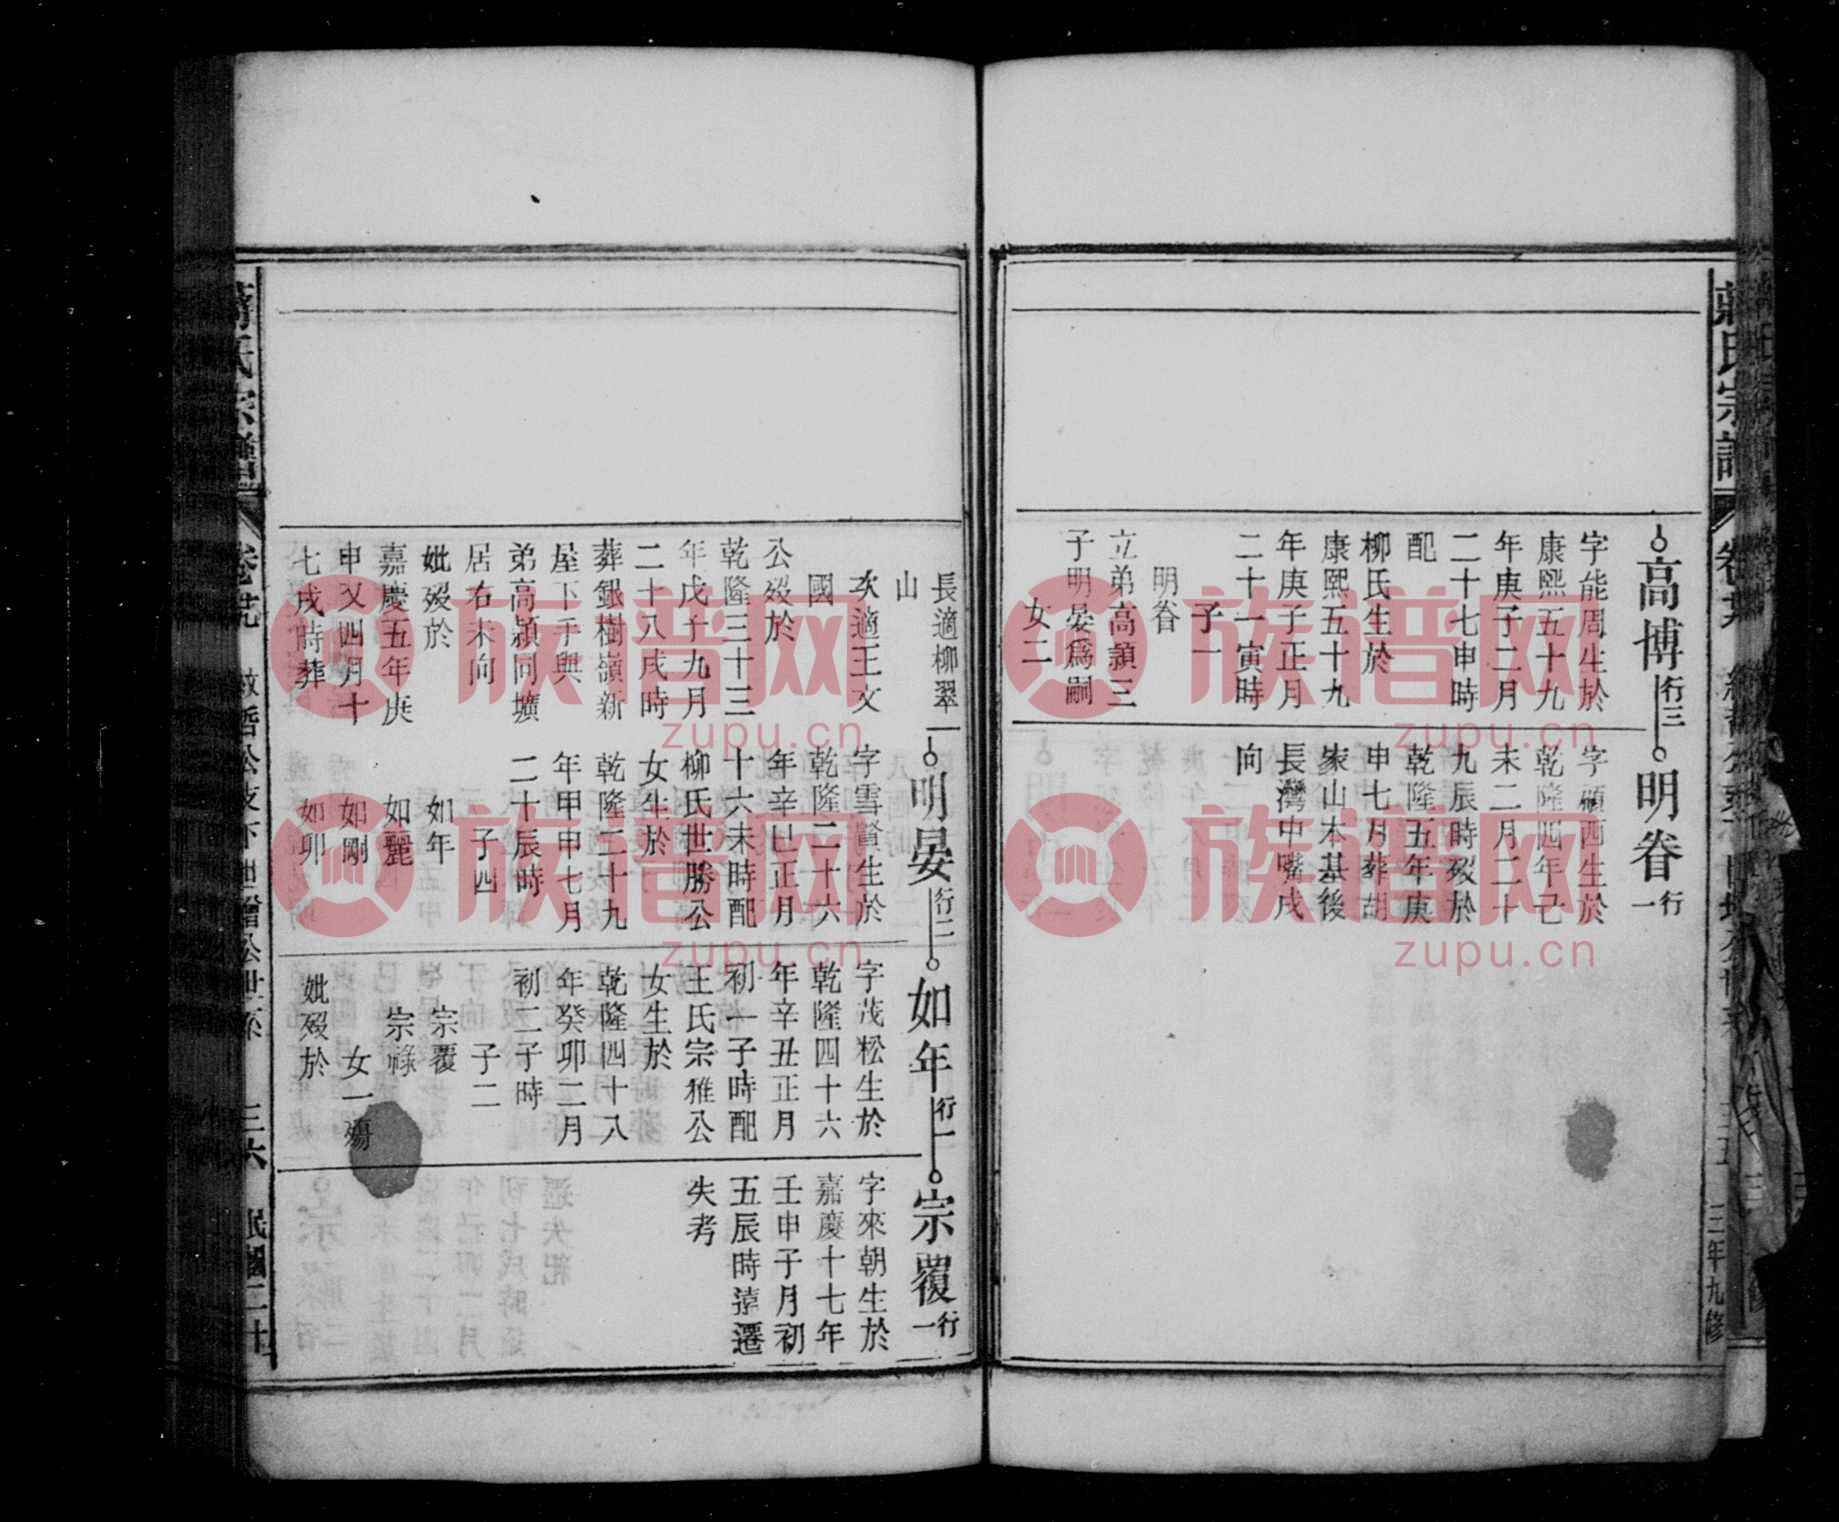 高博行三
字能周生於
康熙五十九
年庚子二月
二十七申時
配
柳氏生於
康熙五十九
年庚子正月
二十一寅時
子一
明眷
立弟高頴三
子明晏爲嗣
女二
明眷行一
字顧西生於
乾隆四年己
未二月二十
九辰時殁於
乾隆五年庚
申七月葬胡
家山本基後
長灣中嘴戌
向
三年九修
長適柳翠
山
次適王文
國
公殁於
乾隆三十三
年戊子九月
二十八戌時
葬銀樹嶺新
屋下手與
弟高頴同壙
居右未向
妣殁於
嘉慶五年庚
申又四月十
七戌時葬
明晏行二
字雪賢生於
乾隆二十六
年辛巳正月
十六未時配
柳氏世勝公
女生於
乾隆二十九
年甲申七月
二十辰時
子四
如年
如麗
如剛
如卯
如年行一
字茂松生於
乾隆四十六
年辛丑正月
初一子時配
王氏宗雅公
女生於
乾隆四十八
年癸卯二月
初二子時
子二
宗覆
宗祿
女一殤
妣殁於
宗覆行一
字來朝生於
嘉慶十七年
壬申子月初
五辰時遠遷
失考
三六
民國二十
族谱网
zupu.cn
族谱网
zupu.cn
族谱网
zupu.cn
族谱网
zupu.cn